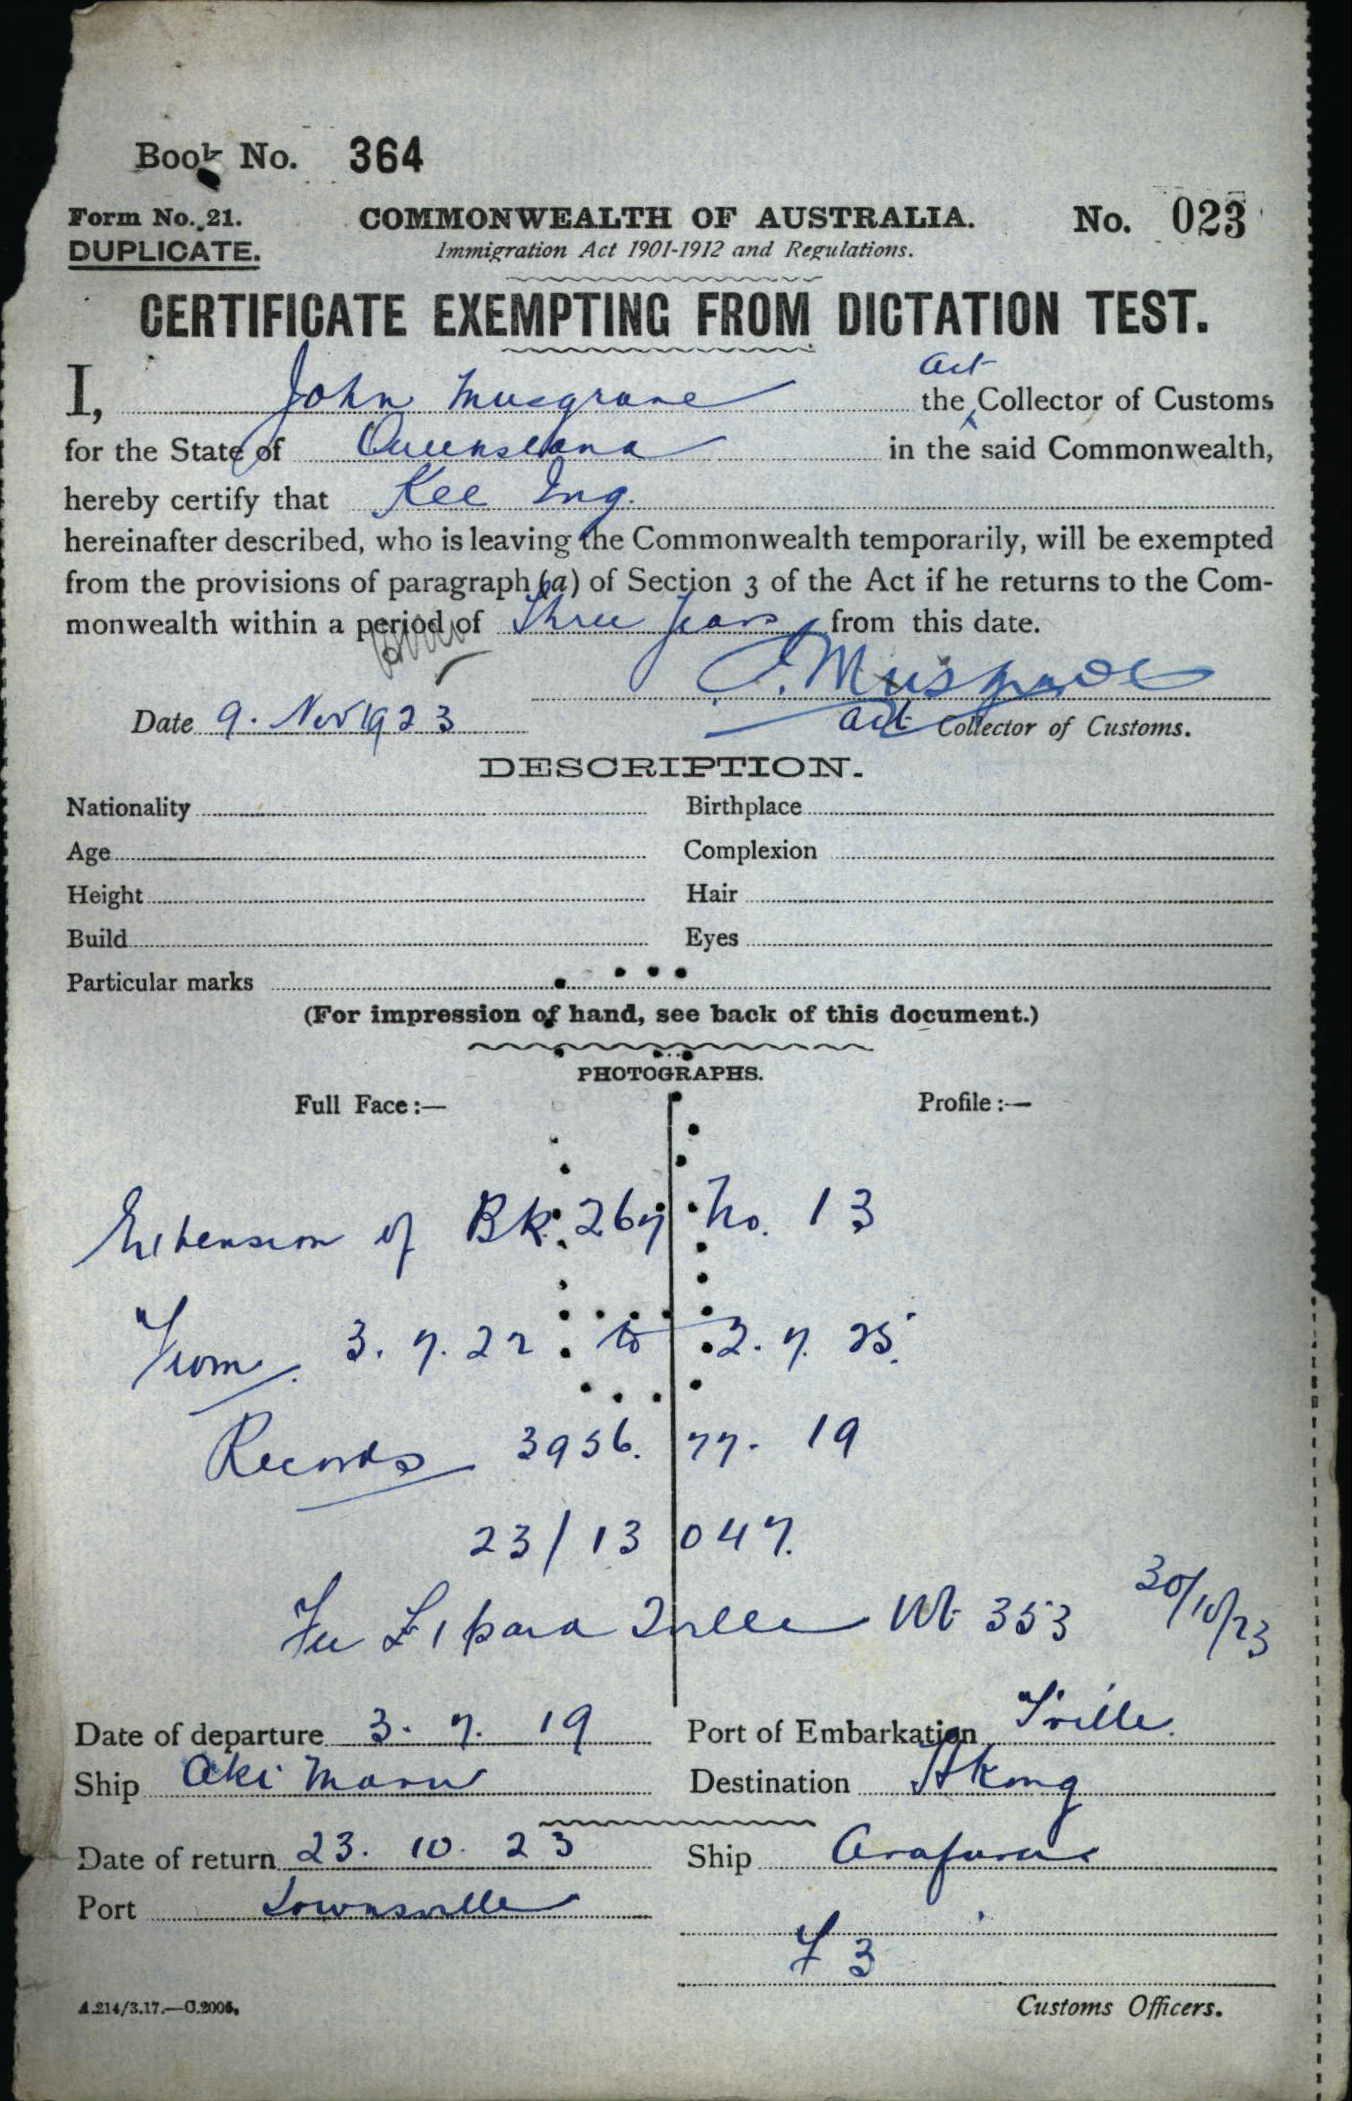 Book No. 364
Form No. 21. COMMONWEALTH OF AUSTRALIA. No. 023
DUPLICATE. Immigration Act 1901-1912 and Regulations.
CERTIFICATE EXEMPTING FROM DICTATION TEST.
Act
I, John Musgrave the Collector of Customs
for the State of Queensland in the said Commonwealth,
hereby certify that Kee Ing.
hereinafter described, who is leaving the Commonwealth temporarily, will be exempted
from the provisions of paragraph (a) of Section 3 of the Act if he returns to the Com-
monwealth within a period of Three Years from this date.
J. Musgrave
Date 9. Nov 1923 Act Collector of Customs.
DESCRIPTION.
Nationality Birthplace
Age Complexion
Height Hair
Build Eyes
Particular marks
(For impression of hand, see back of this document.)
PHOTOGRAPHS.
Full Face:— Profile:—
Extension of Bk 267 No. 13
From 3. 7. 22 to 2. 7. 25.
Records 3956. 77. 19
23/13047.
Fee £1 paid Tville 353 30/10/23
Date of departure 3. 7. 19 Port of Embarkation T'ville.
Ship Aki Maru Destination Hkong
Date of return 23. 10. 23 Ship Arafura
Port Townsville
F 3
A.214/3.17.—C.2005. Customs Officers.